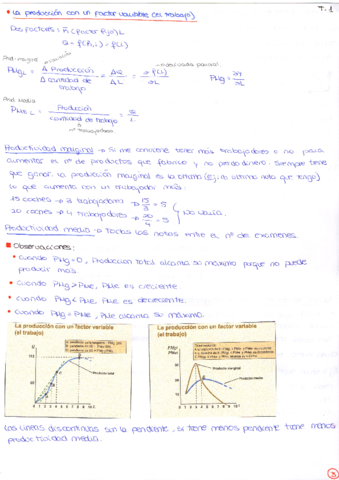 • LA producción con un factor variable (el trabajo)
T.1
Dos factores: K
Q = f(L)
Prod. marginal
PMg L = Δ Producción / Δ Cantidad de trabajo = ΔQ / ΔL
Prod. Media
PMe L = Producción / cantidad de trabajo
nº trabajadores
Productividad marginal → Si me conviene tener más trabajadores o no para
aumentar el nº de productos que fabrico y no perder dinero. Siempre tiene
que ganar. La producción marginal es la última (Ej: mi última nota que tengo)
lo que aumenta con un trabajador más:
15 coches → 3 trabajadores → 15/3 = 5
20 coches → 4 trabajadores → 20/4 = 5
No varía.
Productividad media → Todas las notas entre el nº de exámenes.
Observaciones:
• Cuando PMg = 0, Producción total alcanza su máximo porque no puede
producir más
• Cuando PMg > PMe, PMe es creciente
• Cuando PMg < PMe, PMe es decreciente.
• Cuando PMg = PMe, PMe alcanza su máximo.
La producción con un factor variable
(el trabajo)
Producto total
0 1 2 3 4 5 6 7 8 9 10
La producción con un factor variable
(el trabajo)
Producto marginal
Producto medio
30
20
10
0 1 2 3 4 5 6 7 8 9 10
Las líneas discontinuas son la pendiente, si tiene menos pendiente tiene menos
productividad media.
3